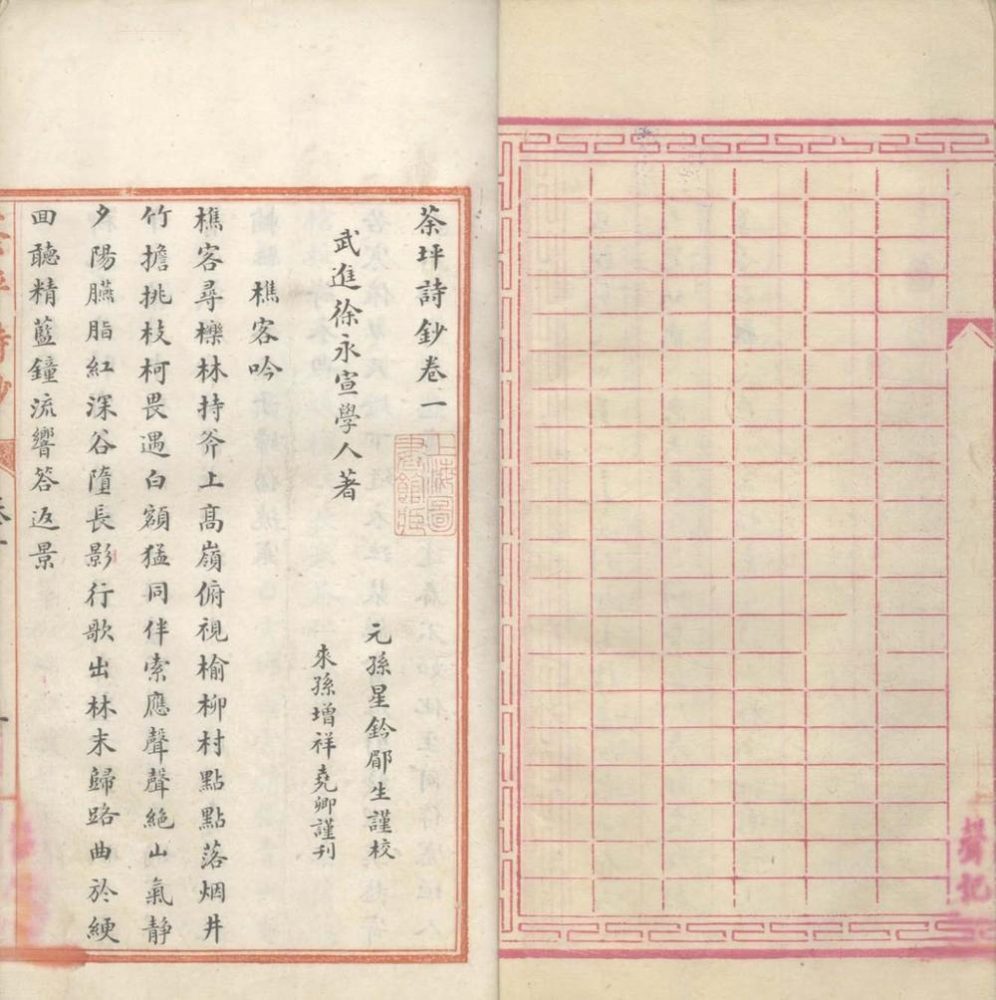 茶坪詩鈔卷一
武進徐永宣學人著
元孫星鈐郿生謹校
來孫增祥堯卿謹刋
樵客吟
樵客尋櫟林持斧上高嶺俯視榆柳村點點落烟井
竹擔挑枝柯畏遇白額猛同伴索應聲聲絶山氣靜
夕陽臙脂紅深谷墮長影行歌出林末歸路曲於綆
回聽精藍鐘流響答返景
上海圖書館藏